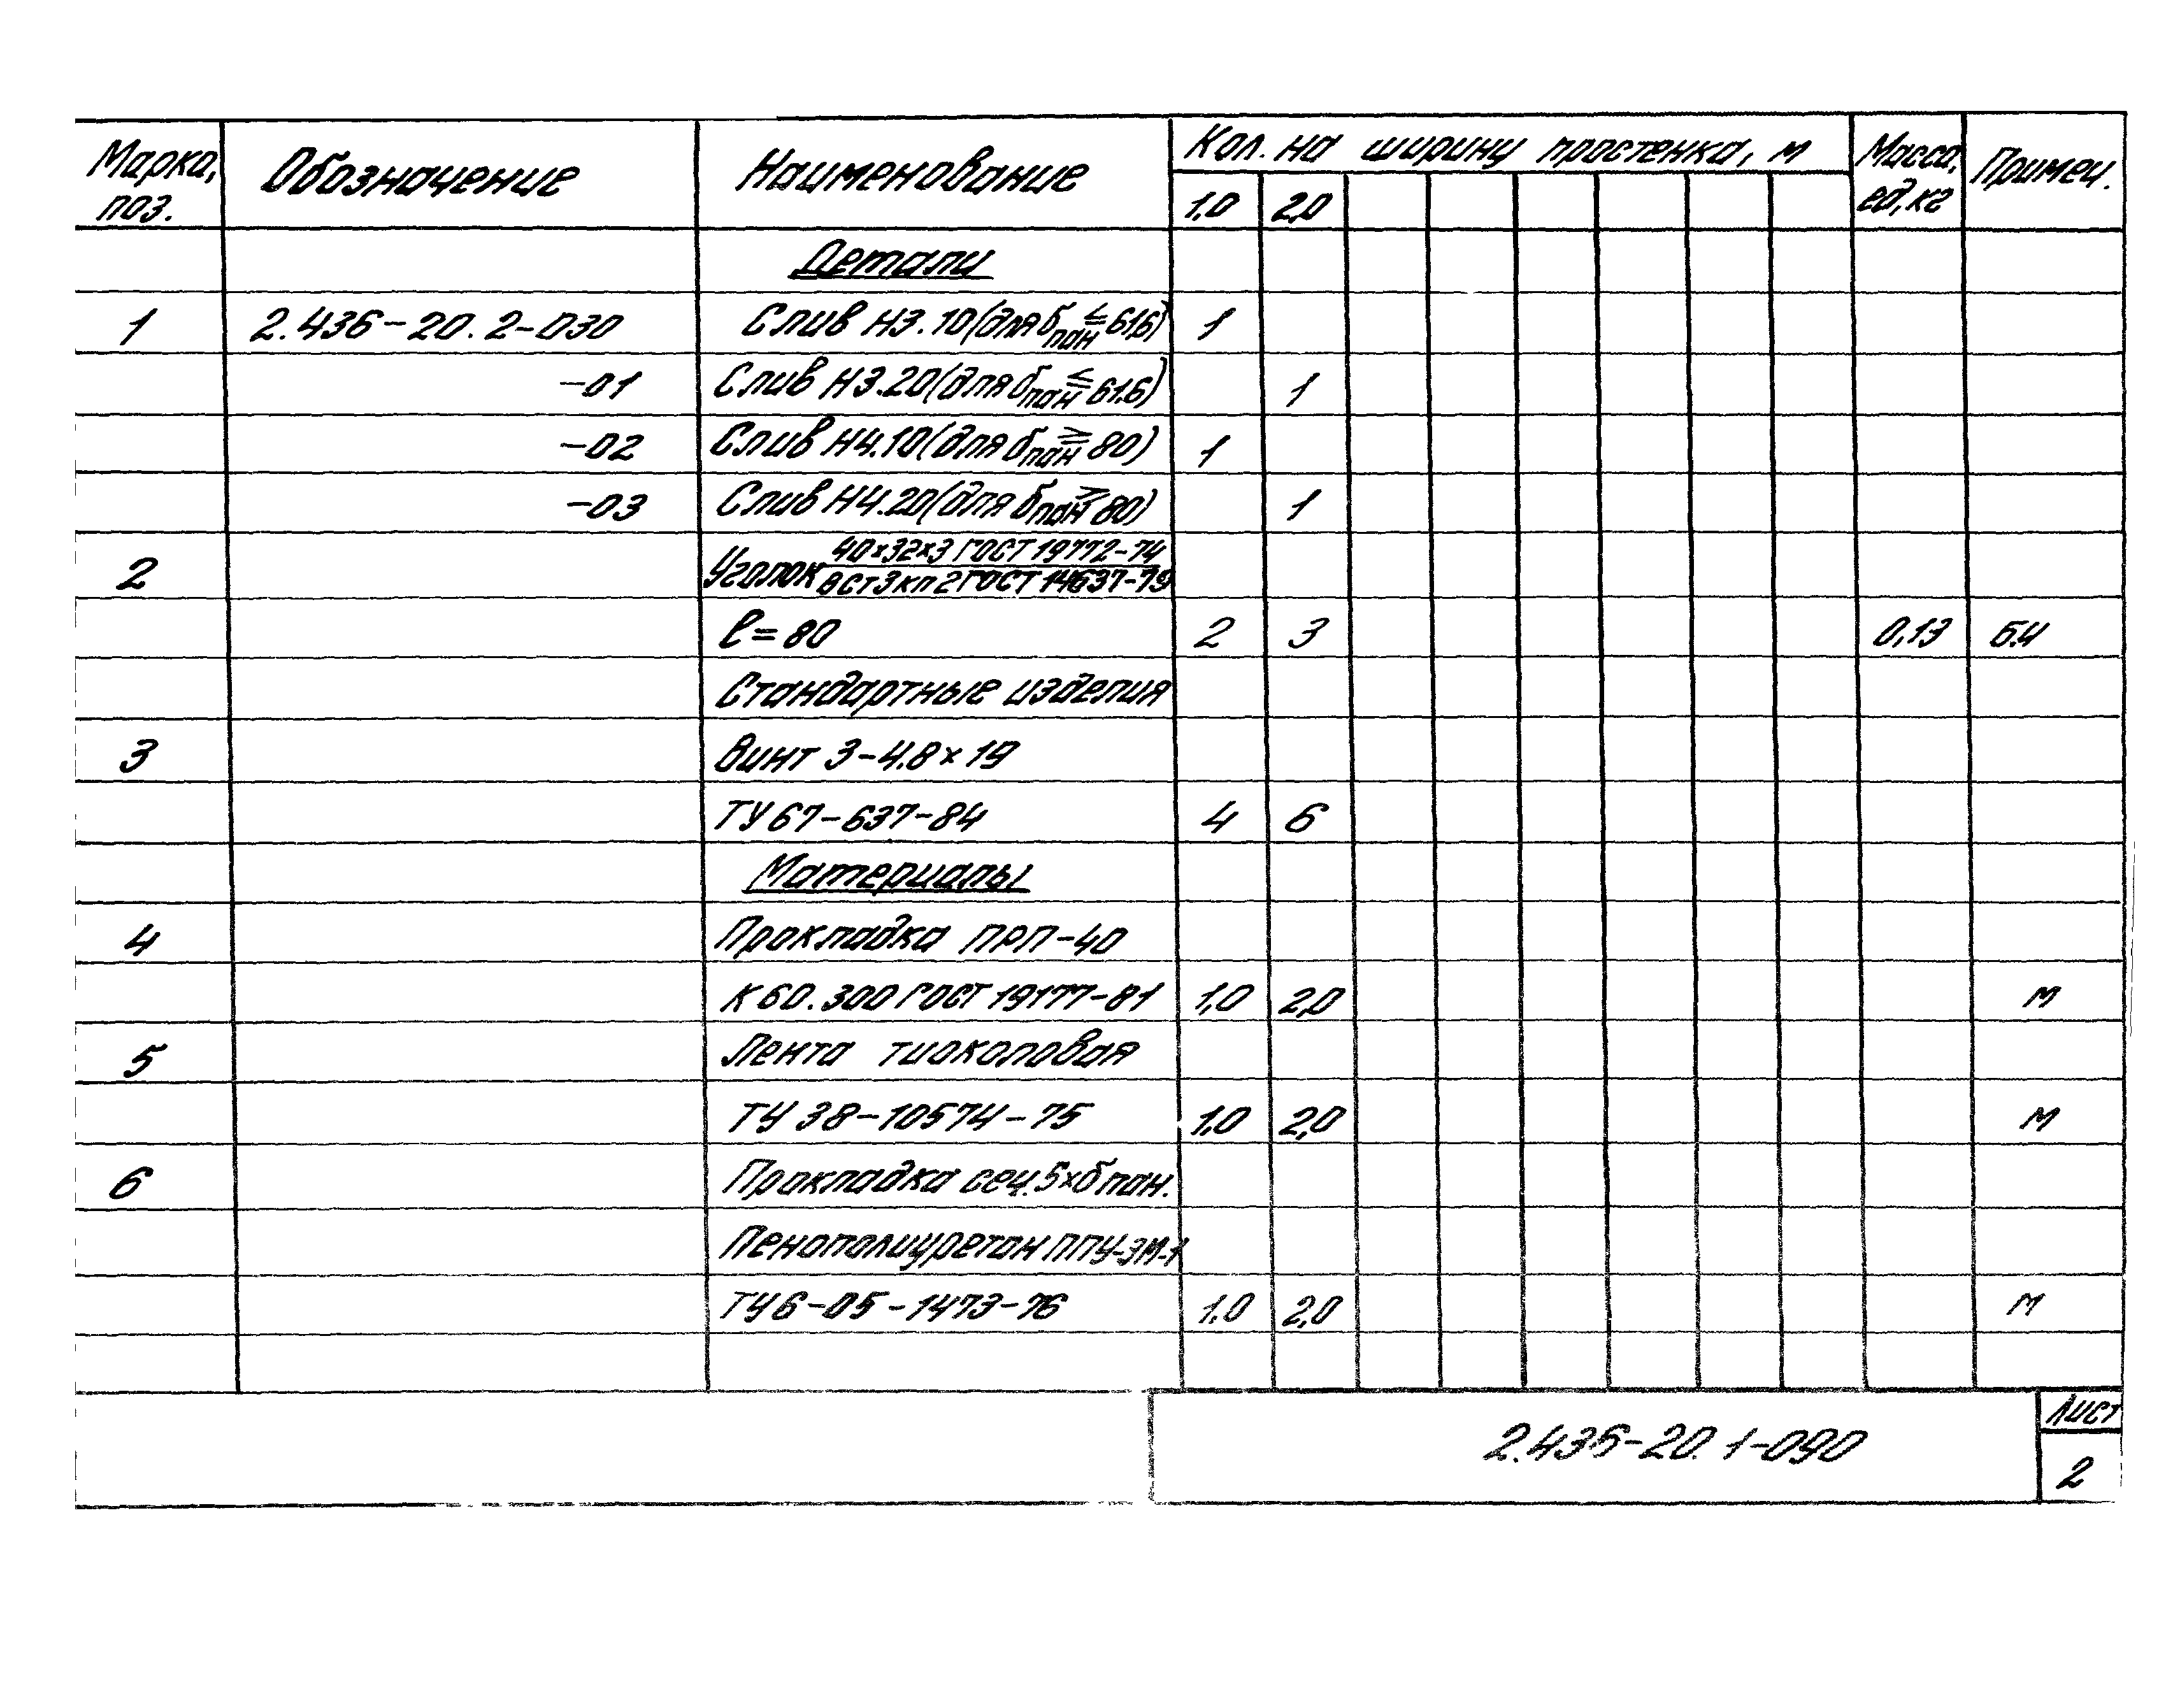 Марка, поз. Обозначение Наименование Кол. на ширину простенка, м Масса, ед, кг Примеч.
1,0 2,0
Детали
1 2.436-20.2-030 Слив Н3.10 (для бпан ≤ 61,6) 1
-01 Слив Н3.20 (для бпан ≤ 61.6) 1
-02 Слив Н4.10 (для бпан ≥ 80) 1
-03 Слив Н4.20 (для бпан ≥ 80) 1
2 Уголок 40×32×3 ГОСТ 19772-74
ВСт3кп2 ГОСТ 14637-79
ℓ = 80 2 3 0,13 б.ч
Стандартные изделия
3 Винт 3-4.8×19
ТУ 67-637-84 4 6
Материалы
4 Прокладка ПРП-40
К60.300 ГОСТ 19177-81 1,0 2,0 м
5 Лента тиоколовая
ТУ 38-10574-75 1,0 2,0 м
6 Прокладка сеч. 5×бпан.
Пенополиуретан ППУ-ЭМ-1
ТУ6-05-1473-76 1,0 2,0 м
2.436-20.1-090 Лист
2